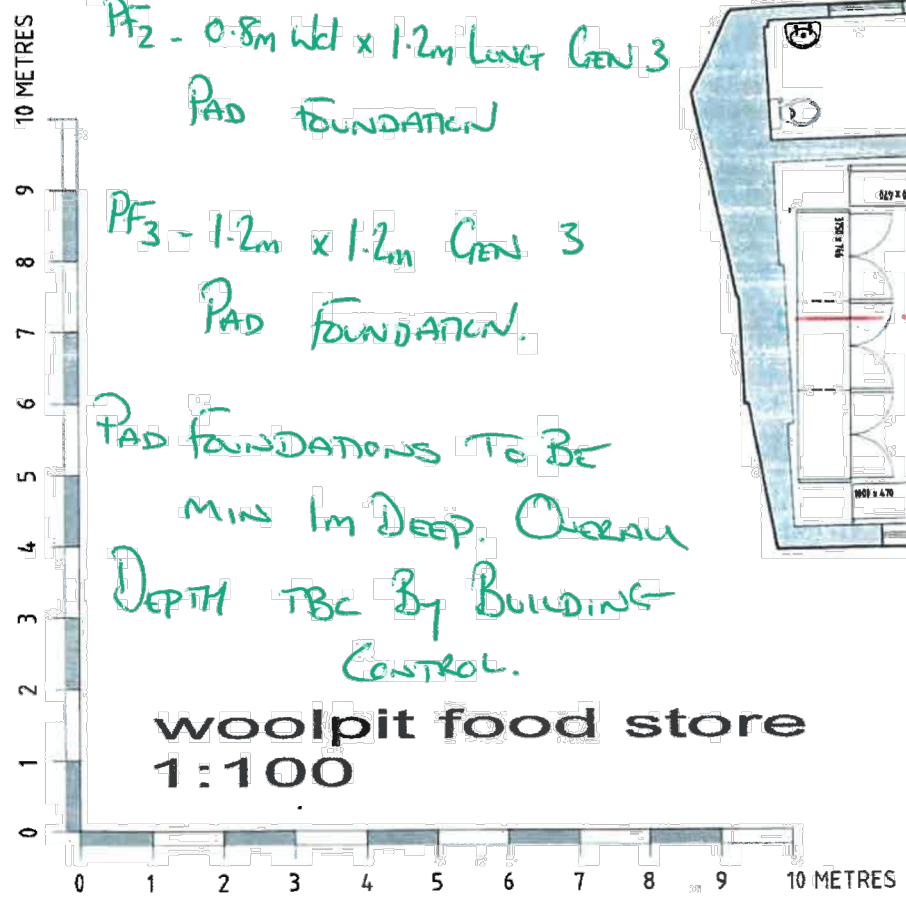 PF2 - 0.8m Wd x 1.2m LONG GEN 3
PAD FOUNDATION
PF3 - 1.2m x 1.2m GEN 3
PAD FOUNDATION.
PAD FOUNDATIONS TO BE
MIN 1m DEEP. OVERALL
DEPTH TBC By BUILDING
CONTROL.
woolpit food store
1:100
10 METRES
9
8
7
6
5
4
3
2
1
0
0 1 2 3 4 5 6 7 8 9 10 METRES
3750 x 746
1000 x 470